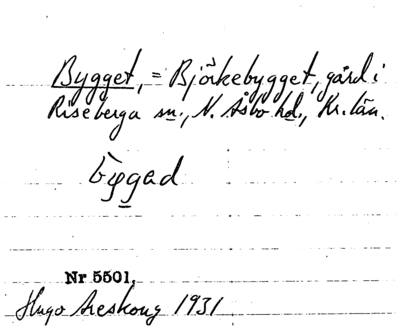 Bygget, = Björkebygget, gård i
Riseberga sn., N. Åsbo hd., Kr. län.
Nr 5501.
Hugo Areskoug 1931